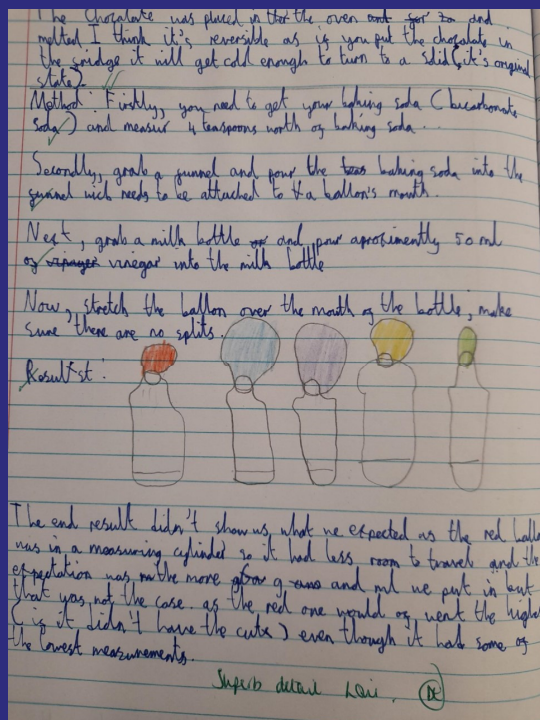 The Chocolate was placed in the oven and
melted I think it's reversible as if you put the chocolate in
the fridge it will get cold enough to turn to a solid (it's original
state).
Method: Firstly, you need to get your baking soda (bicarbonate
soda) and measur 4 teaspoons worth of baking soda...
Secondly, grab a funnel and pour the baking soda into the
funnel wich needs to be attached to a ballon's mouth.
Next, grab a milk bottle and pour aproximently 50 ml
of vinegar into the milk bottle
Now, stretch the ballon over the mouth of the bottle, make
sure there are no splits.
Result:
The end result didn't show us what we expected as the red ball
was in a measuring cylinder so it had less room to travel and the
expectation was the more g and ml we put in but
that was not the case. as the red one would of went the high
(if it didn't have the cuts) even though it had some of
the lowest measurements.
Superb detail